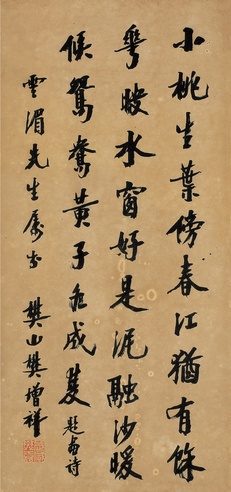 小桃生葉傍春江猶有餘
暎水窗好是泥融沙暖
候鴛鴦黃子成雙 題畫詩
雲湄先生屬 樊山樊增祥